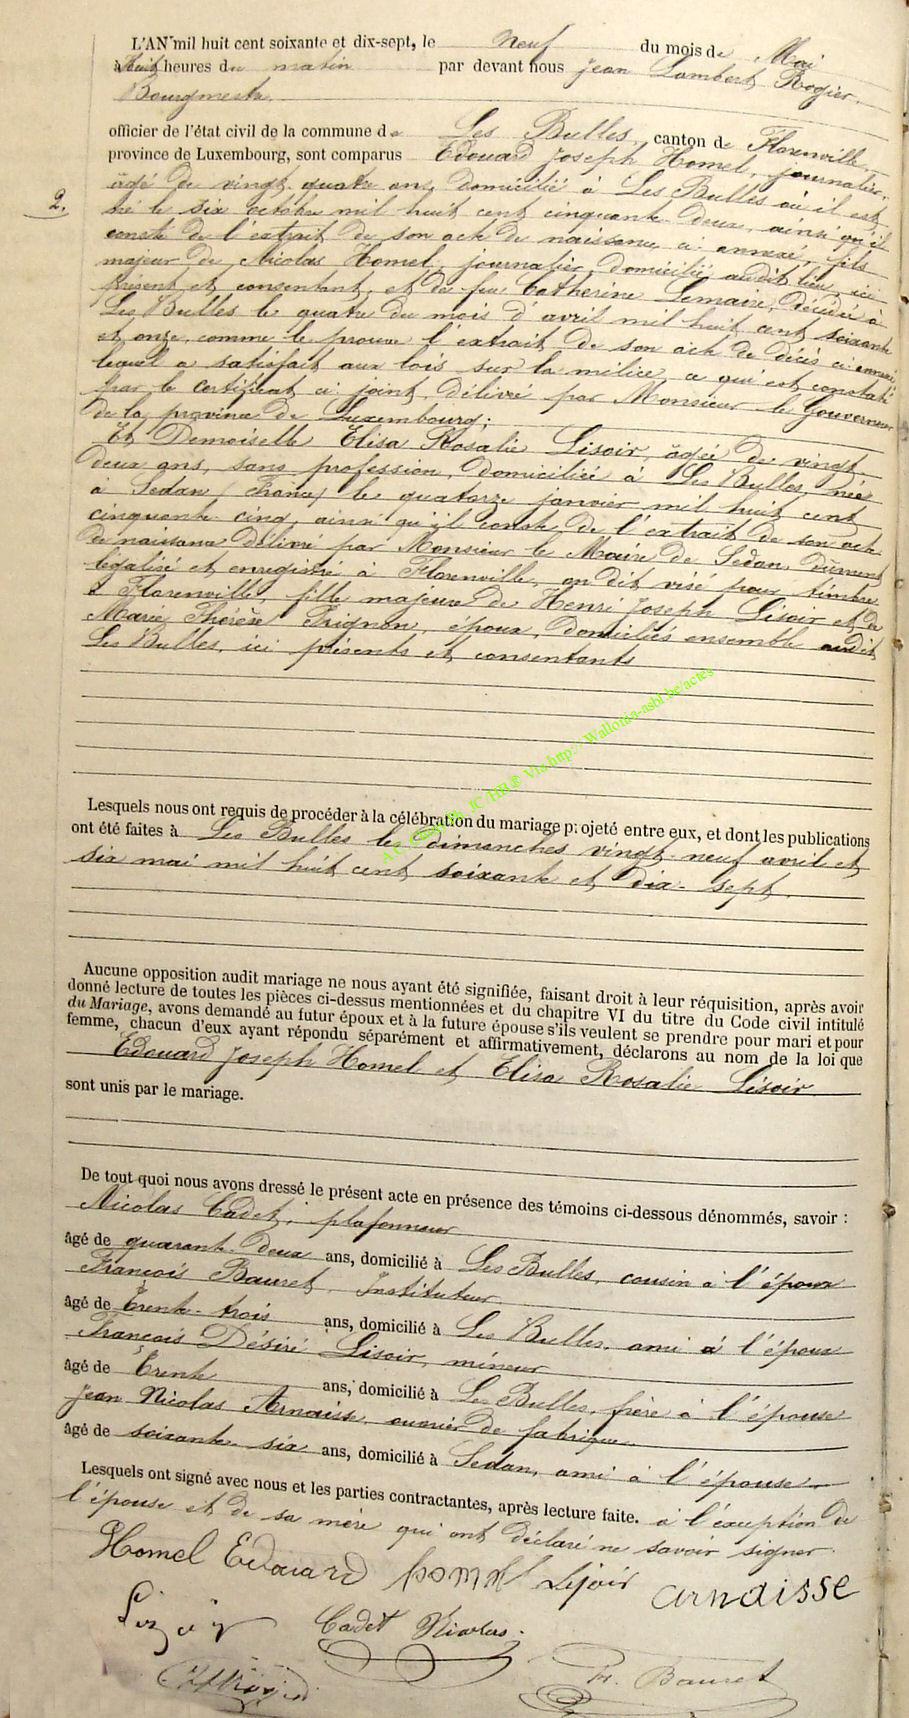 L'AN mil huit cent soixante et dix-sept, le neuf du mois de Mai
à huit heures du matin par devant nous Jean Lambert Rogier,
Bourgmestre
officier de l'état civil de la commune de Les Bulles, canton de Florenville,
province de Luxembourg, sont comparus Edouard Joseph Homel, journalier,
2.
âgé de vingt-quatre ans, domicilié à Les Bulles où il est
né le six octobre mil huit cent cinquante-deux, ainsi qu'il
conste de l'extrait de son acte de naissance ci-annexé, fils
majeur de Nicolas Homel, journalier, domicilié audit lieu, ici
présent et consentant, et de feu Catherine Lemaire, décédée à
Les Bulles le quatre du mois d'avril mil huit cent soixante
et onze, comme le prouve l'extrait de son acte de décès ci-annexé
lequel a satisfait aux lois sur la milice, ce qui est constaté
par le certificat ci-joint, délivré par Monsieur le Gouverneur
de la province de Luxembourg;
Et Demoiselle Elisa Rosalie Lisoir, âgée de vingt
deux ans, sans profession, domiciliée à Les Bulles, née
à Sedan (France) le quatorze janvier mil huit cent
cinquante-cinq, ainsi qu'il conste de l'extrait de son acte
de naissance délivré par Monsieur le Maire de Sedan, dûment
légalisé et enregistré à Florenville, on dit visé pour timbre
à Florenville, fille majeure de Henri Joseph Lisoir et de
Marie Thérèse Frignon, époux, domiciliés ensemble audit
Les Bulles, ici présents et consentants
A.C. JC HR® Via http://Wallonia-asbl.be/actes
Lesquels nous ont requis de procéder à la célébration du mariage projeté entre eux, et dont les publications
ont été faites à Les Bulles les dimanches vingt-neuf avril et
six mai mil huit cent soixante et dix-sept.
Aucune opposition audit mariage ne nous ayant été signifiée, faisant droit à leur réquisition, après avoir
donné lecture de toutes les pièces ci-dessus mentionnées et du chapitre VI du titre du Code civil intitulé
du Mariage, avons demandé au futur époux et à la future épouse s'ils veulent se prendre pour mari et pour
femme, chacun d'eux ayant répondu séparément et affirmativement, déclarons au nom de la loi que
Edouard Joseph Homel et Elisa Rosalie Lisoir
sont unis par le mariage.
De tout quoi nous avons dressé le présent acte en présence des témoins ci-dessous dénommés, savoir :
Nicolas Cadet, plafonneur
âgé de quarante-deux ans, domicilié à Les Bulles, cousin à l'époux
François Bauret, Instituteur
âgé de trente-trois ans, domicilié à Les Bulles, ami à l'époux
François Désiré Lisoir, mineur
âgé de trente ans, domicilié à Les Bulles, frère à l'épouse
Jean Nicolas Arnaisse, ouvrier de fabrique
âgé de soixante-six ans, domicilié à Sedan, ami à l'épouse
Lesquels ont signé avec nous et les parties contractantes, après lecture faite. à l'exception de
l'épouse et de sa mère qui ont déclaré ne savoir signer.
Homel Edouard homel Lisoir arnaisse
Cadet Nicolas
F. Bauret